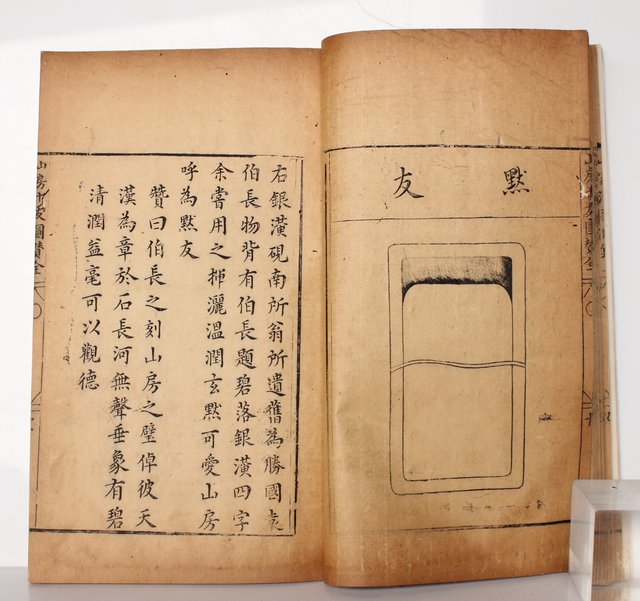 默友
右銀潢硯南所翁所遺舊為勝國
伯長物背有伯長題碧落銀潢四字
余嘗用之揮灑溫潤玄默可愛山房
呼為默友
贊曰伯長之刻山房之璧倬彼天
漢為章於石長河無聲垂象有碧
清潤益毫可以觀德
山房十友圖贊全